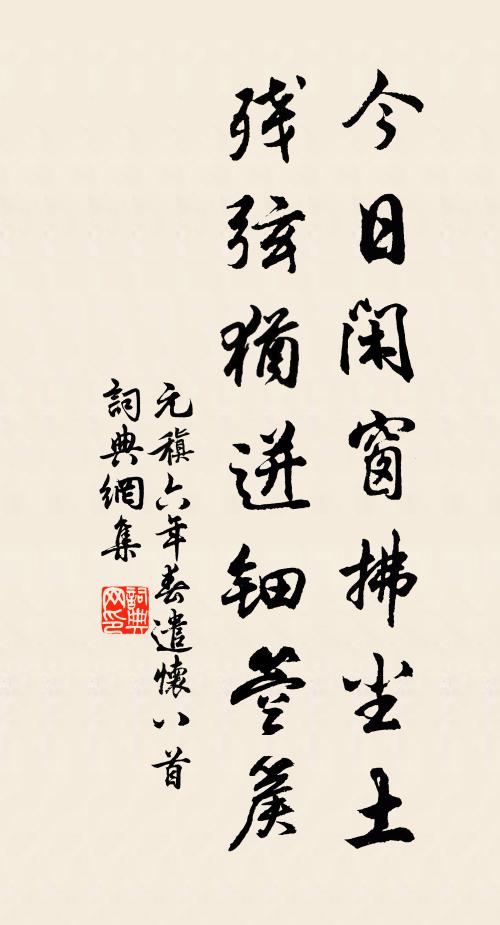 今日閑窗拂尘土
残弦猶迸鈿箜篌
元稹六年春遣懷八首
詞典網集
詞典网印